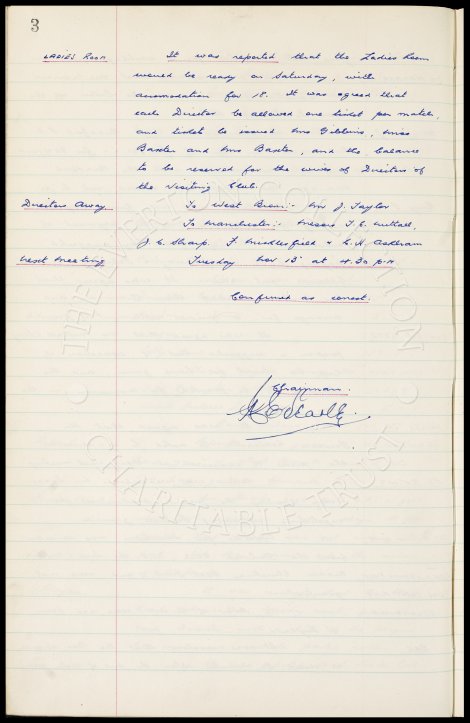 3
LADIES ROOM It was reported that the Ladies Room
would be ready on Saturday, with
accomodation for 18. It was agreed that
each Director be allowed one ticket per match,
and tickets be issued Mrs Gibbins, Miss
Baxter and Mrs Baxter, and the balance
to be reserved for the wives of Directors of
the Visiting Club.
Directors Away. To West Brom:- Mr J. Taylor
To Manchester:- Messrs T. C. Nuttall,
J. C. Sharp. F. Micklesfield & C. H. Askham
Next Meeting Tuesday Nov 13 at 4.30 p.m
Confirmed as correct.
Chairman.
THE EVERTON COLLECTION
CHARITABLE TRUST